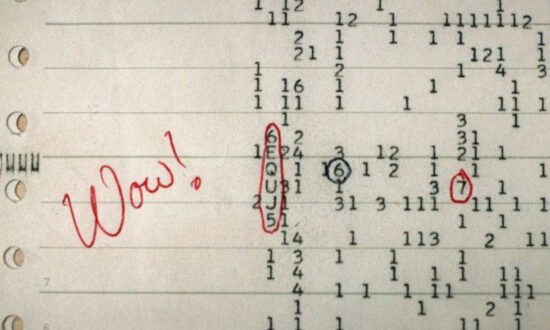 1 12 1
11 12 1 1111112
2 1 1 1 1 1
21 1 121 1
1 2 1 4 3
1 16 1 1
1 11 1 1 11 1
1 3 1
6 2 31
1 E 24 3 12 1 21 1
Q 1 16 1 2 1 1 1
Wow! U 31 1 3 7 1
2 J 1 31 3 111 11 1
5 1 1 1
14 1 113 2 11
1 3 1 1 1 1
7 1 4 1 1 11
4 1 1 1 1 111
1 1 2 1
1 1 1 1 1 1